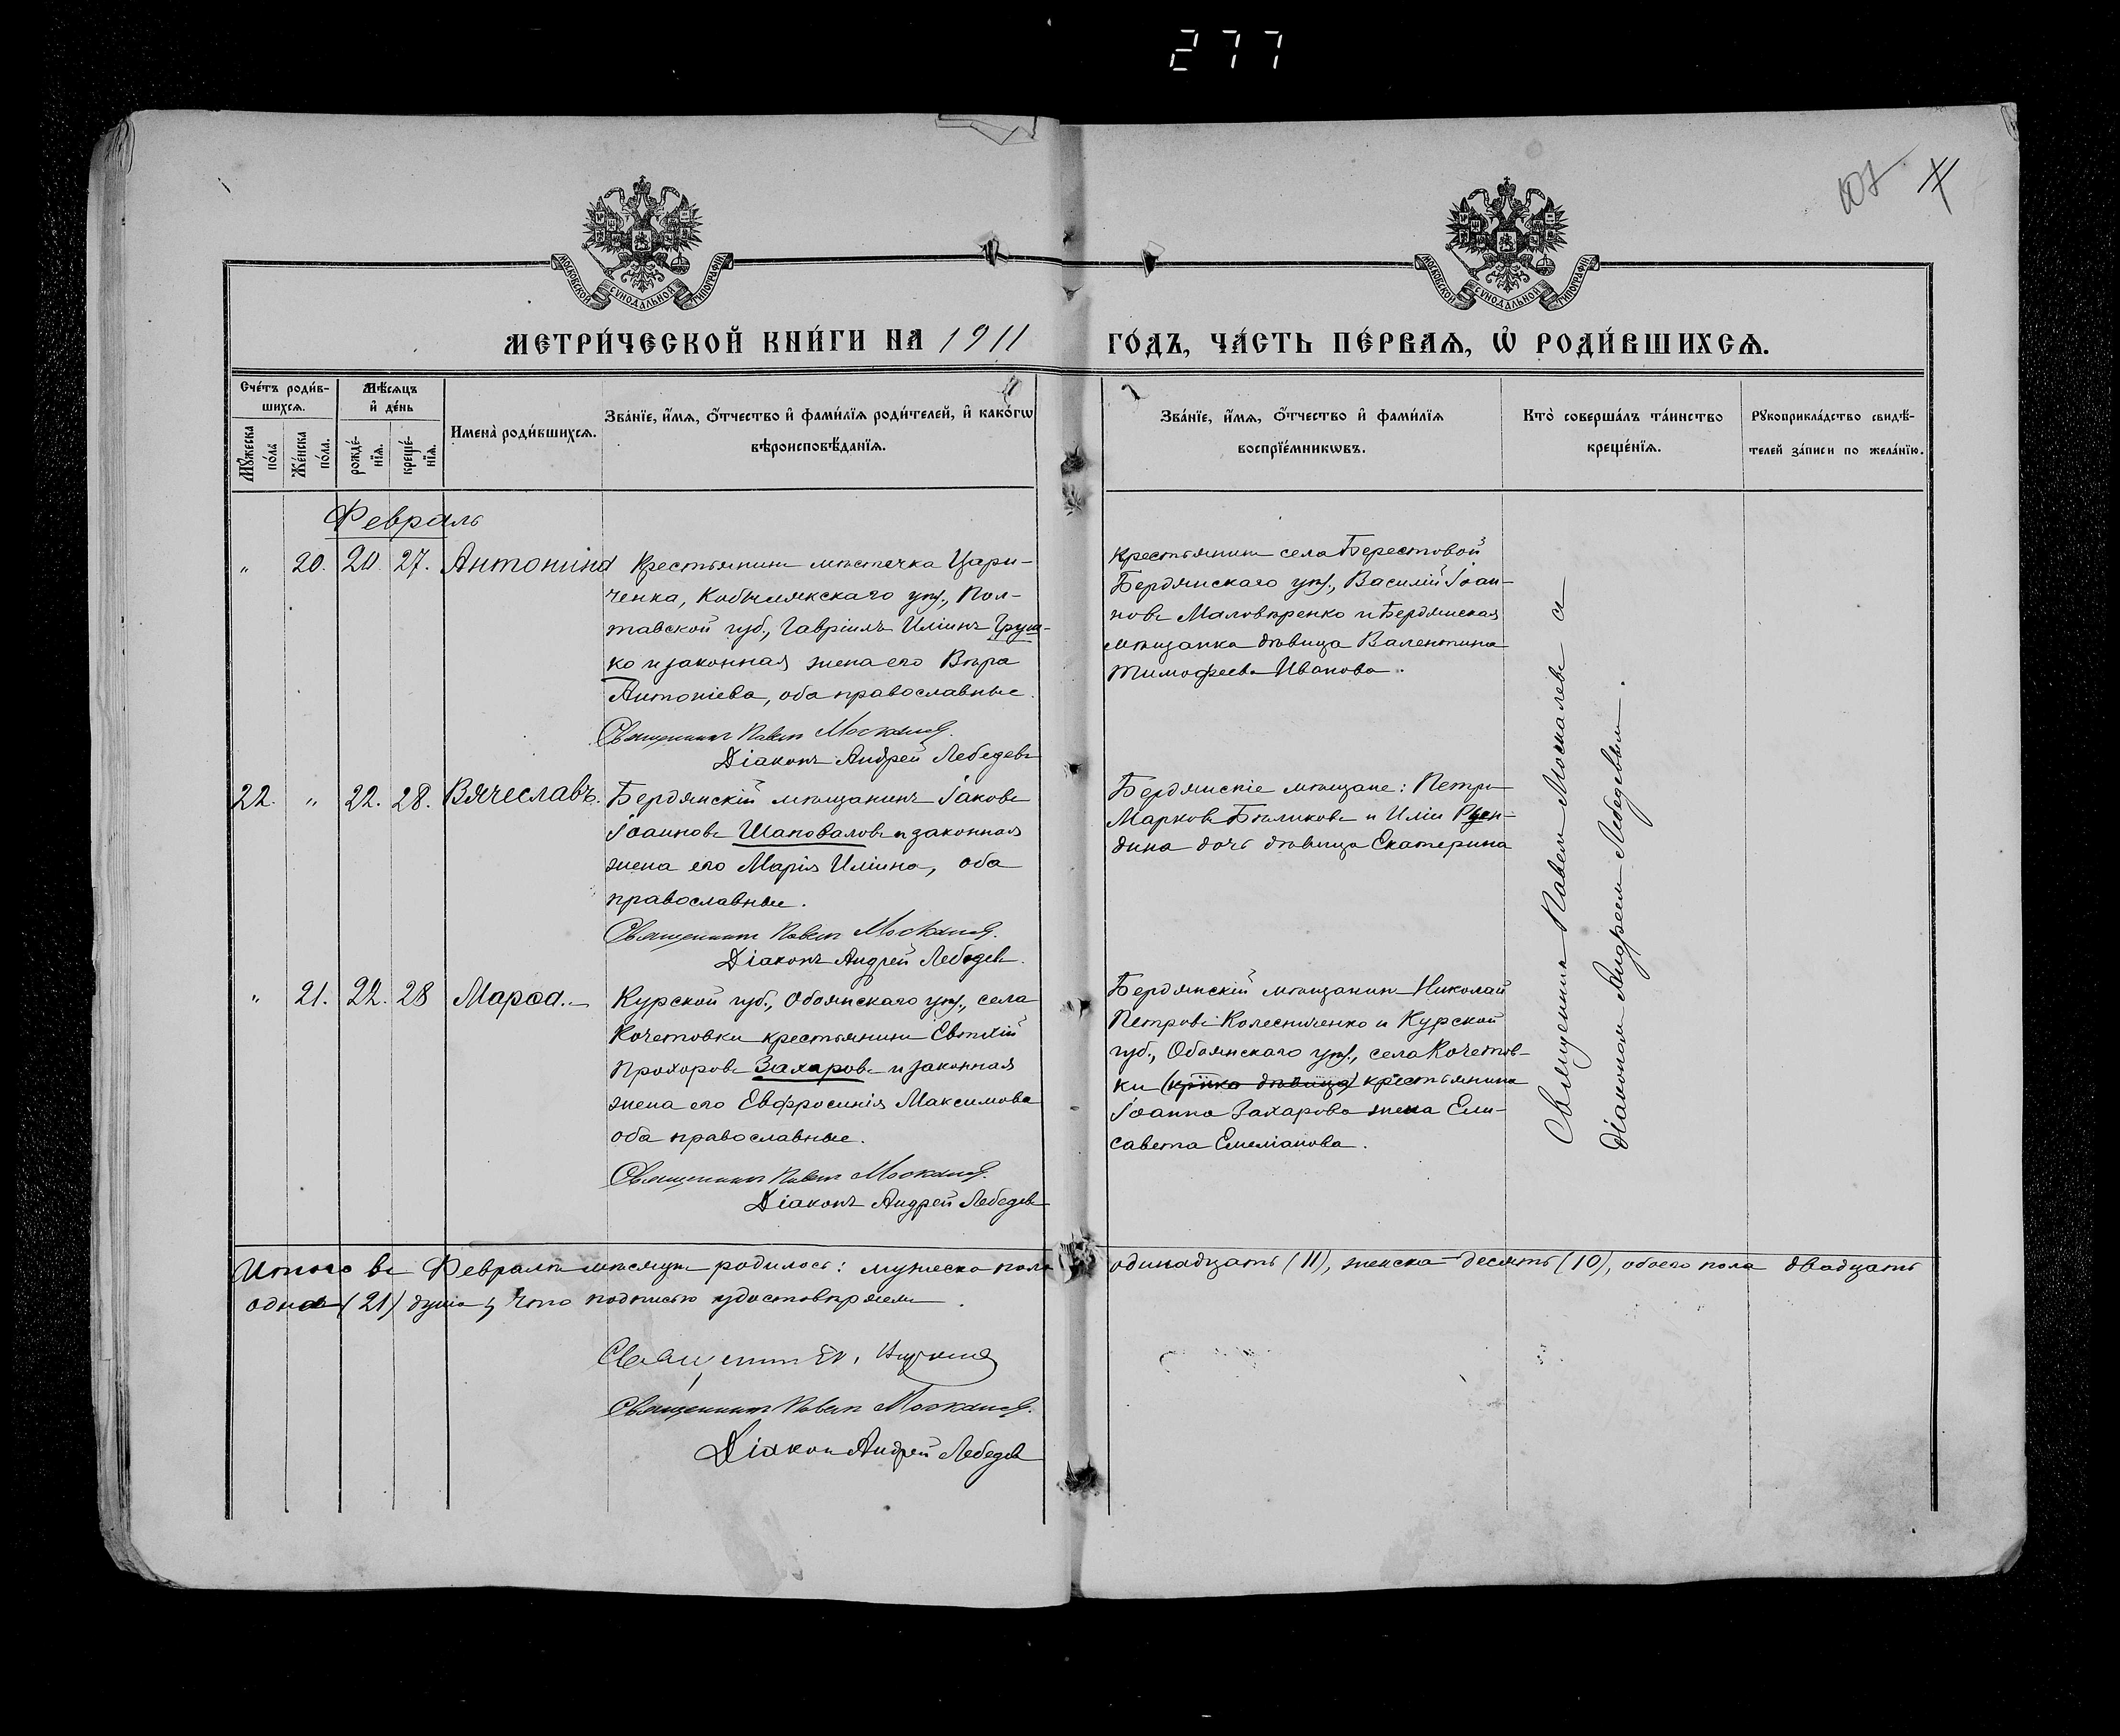 277
107
МОСКОВСКОЙ СѴНОДАЛЬНОЙ ТИПОГРАФІИ
МОСКОВСКОЙ СѴНОДАЛЬНОЙ ТИПОГРАФІИ
МЕТРИ́ЧЕСКОЙ КНИ́ГИ НА 1911 ГО́ДЪ, ЧА́СТЬ ПЕ́РВАѦ, Ѡ҆ РОДИ́ВШИХСѦ.
Сче́тъ роди́в-
шихсѧ.
Мꙋ́жеска
по́ла
Же́нска
по́ла.
Мѣ́сѧцъ
и҆ де́нь
рожде́-
нїѧ.
креще́-
нїѧ.
Имена̀ роди́вшихсѧ.
Зва́нїе, и҆́мѧ, ѻ҆́тчество и҆ фами́лїѧ роди́телей, и҆ како́гѡ
вѣроисповѣ́данїѧ.
Зва́нїе, и҆́мѧ, ѻ҆́тчество и҆ фами́лїѧ
воспрїе́мникѡвъ.
Кто̀ соверша́лъ та́инство
креще́нїѧ.
Рꙋкоприкла́дство свидѣ́-
телей за́писи по жела́нїю.
Февраль
„ 20. 20. 27. Антонина
Крестьянинъ мѣстечка Цари-
ченка, Кобылякскаго уѣз., Пол-
тавской губ., Гавріилъ Иліинъ Груш-
ко и законная жена его Вѣра
Антоніева, оба православные.
Священникъ Павелъ Москалевъ.
Діаконъ Андрей Лебедевъ
Крестьянинъ села Берестовой
Бердянскаго уѣз., Василій Іоан-
новъ Маловѣренко и Бердянская
мѣщанка дѣвица Валентина
Тимофеева Иванова.
22. „ 22. 28. Вячеславъ.
Бердянскій мѣщанинъ Іаковъ
Іоанновъ Шаповаловъ и законная
жена его Марія Иліина, оба
православные.
Священникъ Павелъ Москалевъ.
Діаконъ Андрей Лебедевъ.
Бердянскіе мѣщане: Петръ
Марковъ Бѣликовъ и Иліи
дина дочь дѣвица Екатерина
„ 21. 22. 28 Марѳа.
Курской губ., Обоянскаго уѣз., села
Кочетовки крестьянинъ Евтихій
Прохоровъ Захаровъ и законная
жена его Евфросинія Максимова
оба православные.
Священникъ Павелъ Москалевъ.
Діаконъ Андрей Лебедевъ
Бердянскій мѣщанинъ Николай
Петровъ Колесниченко и Курской
губ., Обоянскаго уѣз., села Кочетов-
ки дѣвица) крестьянина
Іоанна Захарова жена Ели-
савета Емеліанова.
Священникъ Павелъ Москалевъ съ
діакономъ Андреемъ Лебедевымъ.
Итого въ Февралѣ мѣсяцѣ родилось: мужеска пола одинадцать (11), женска десять (10), обоего пола двадцать
одна (21) душа, что подписью удостовѣряемъ.
Священникъ Павелъ Москалевъ.
Діаконъ Андрей Лебедевъ